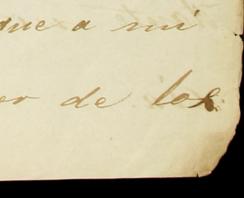 que a mi
de los